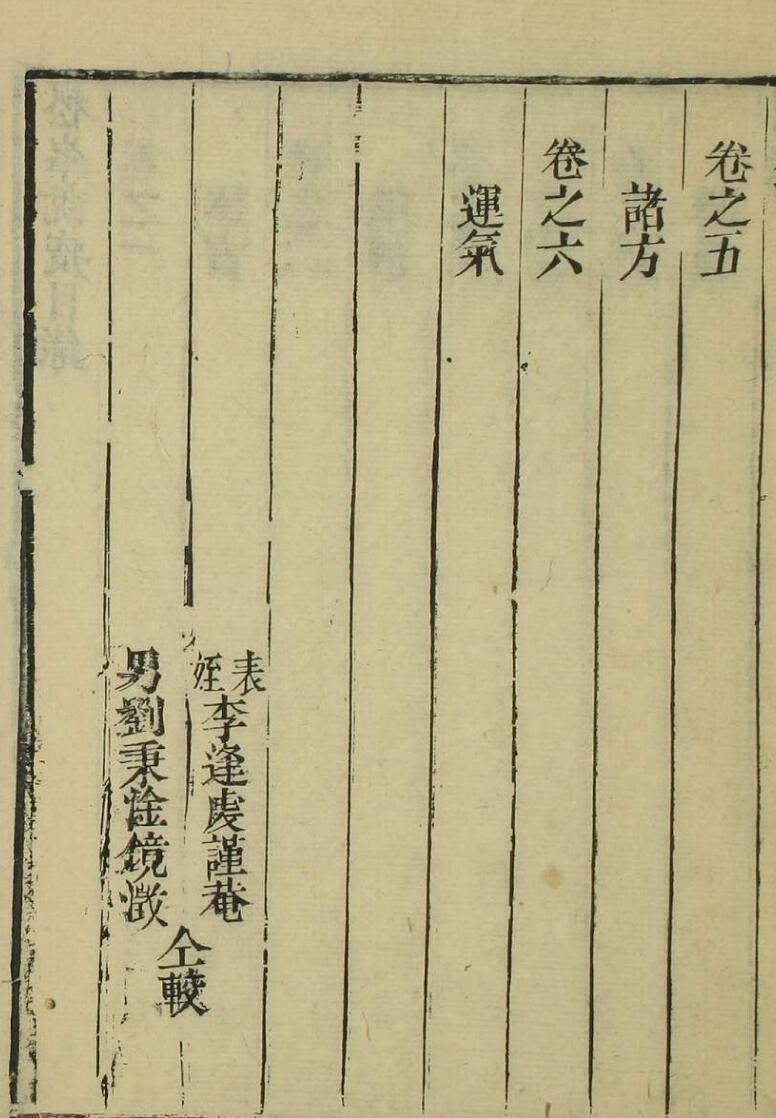 卷之五
諸方
卷之六
運氣
表姪李逢虔謹菴
男劉秉淦鏡澂
仝較